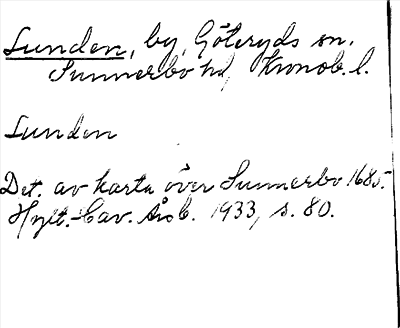 Lunden, by, Göteryds sn,
Sunnerbo hd, Kronob. l.
Lunden
Det. av karta över Sunnerbo 1685.
Hylt.-Cav. årsb. 1933, s. 80.